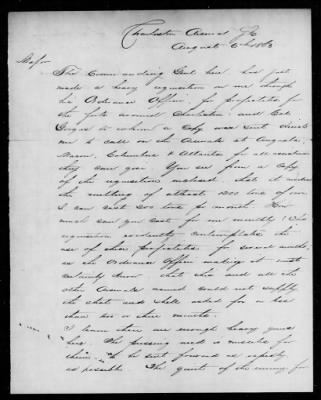 Charleston Arsenal S.C.
August 6th 1863
Major
The Commanding Genl here has just
made a heavy requisition on me through
his Ordnance Officer, for projectiles for
the forts around Charleston, and Col.
Gorgas to whom a copy was sent directs
me to call on the Arsenals at Augusta,
Macon, Columbus & Atlanta for all assistance
they can give. You see from a copy
of the requisition enclosed that it involves
the casting of at least 1200 tons of iron
I can cast 200 tons pr month. How
much can you cast for me monthly? This
requisition evidently contemplates the
use of these projectiles for several months,
as the Ordnance Officer making it must
certainly know that this and all the
other Arsenals named could not supply
the shot and shell asked for in less
than two or three months.
I learn there are enough heavy guns
here. The pressing need is missiles for
them, to be sent forward as rapidly
as possible. The guns of the enemy, for